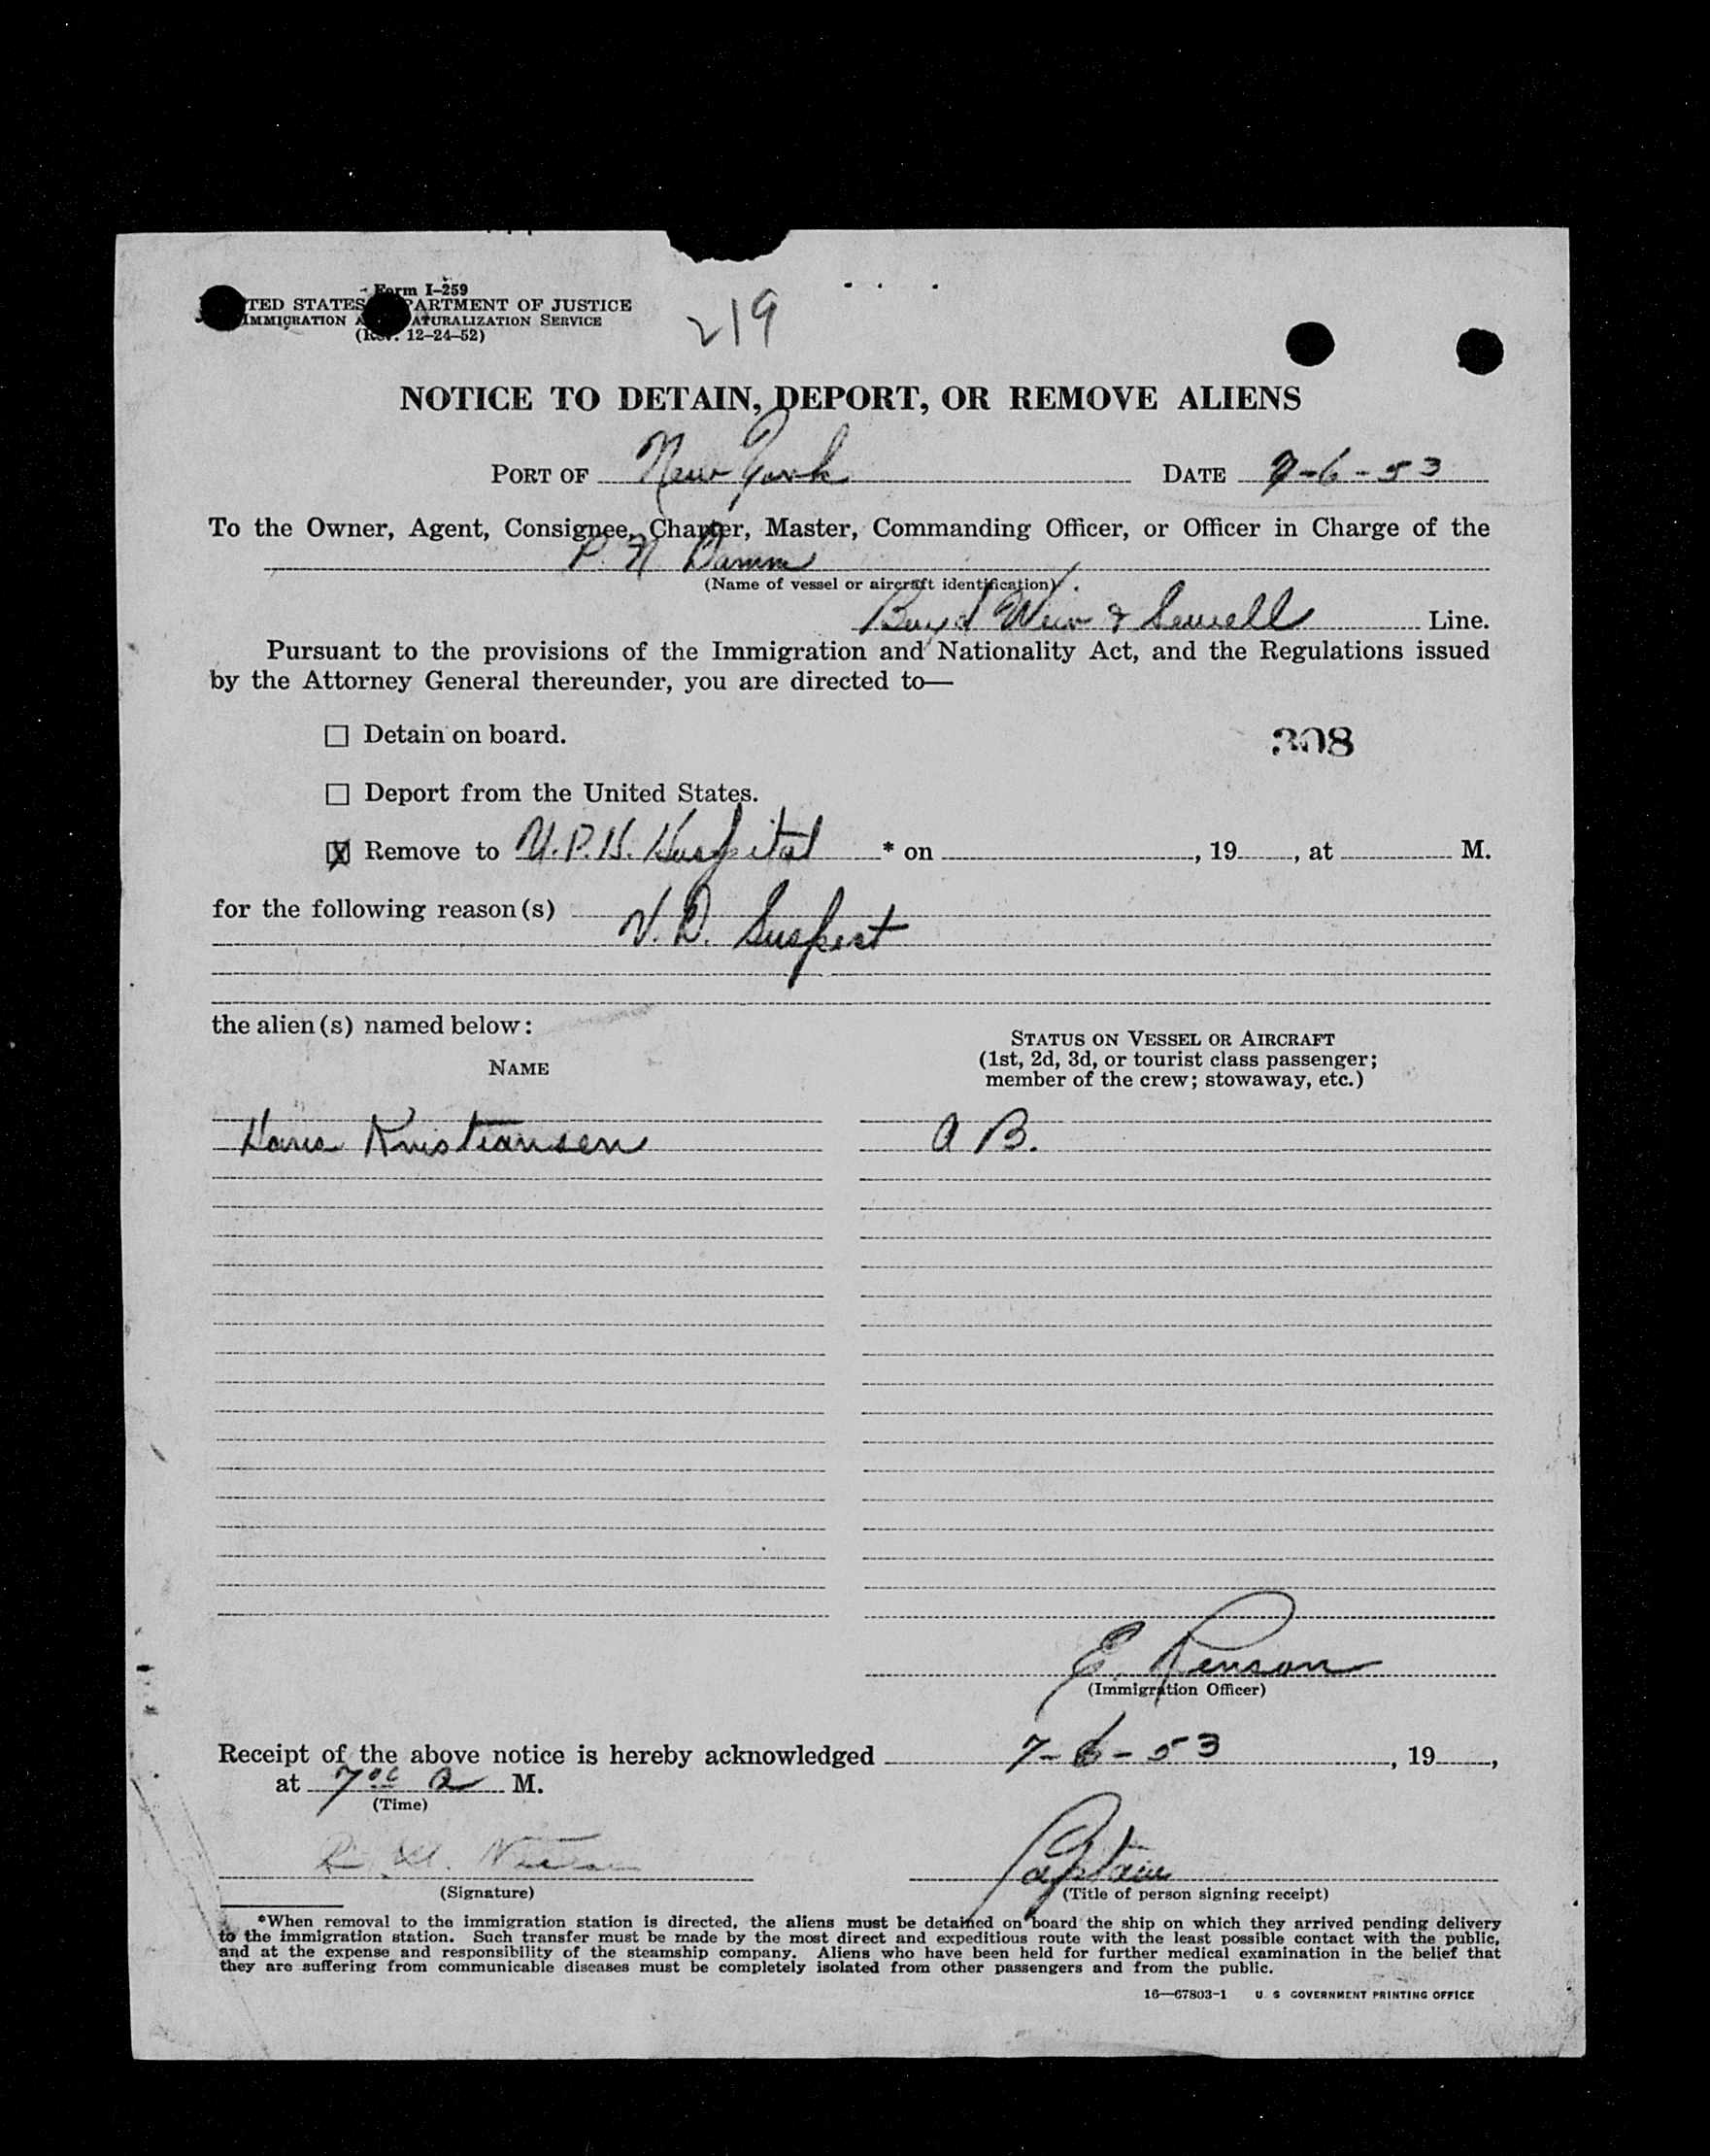 Form I-259
TED STATES PARTMENT OF JUSTICE
IMMIGRATION A ATURALIZATION SERVICE
(Rev. 12-24-52)
219
NOTICE TO DETAIN, DEPORT, OR REMOVE ALIENS
PORT OF New York DATE 7-6-53
To the Owner, Agent, Consignee, Charter, Master, Commanding Officer, or Officer in Charge of the
P. N. Damm
(Name of vessel or aircraft identification)
Boyd Weir & Sewell Line.
Pursuant to the provisions of the Immigration and Nationality Act, and the Regulations issued
by the Attorney General thereunder, you are directed to—
☐ Detain on board.
308
☐ Deport from the United States.
☒ Remove to Hospital * on , 19 , at M.
for the following reason(s)
V. D. Suspect
the alien(s) named below:
NAME
STATUS ON VESSEL OR AIRCRAFT
(1st, 2d, 3d, or tourist class passenger;
member of the crew; stowaway, etc.)
Hans Kristiansen A B.
E.
(Immigration Officer)
Receipt of the above notice is hereby acknowledged 7-6-53 , 19 ,
at 7 00 a M.
(Time)
Captain
(Signature) (Title of person signing receipt)
*When removal to the immigration station is directed, the aliens must be detained on board the ship on which they arrived pending delivery
to the immigration station. Such transfer must be made by the most direct and expeditious route with the least possible contact with the public,
and at the expense and responsibility of the steamship company. Aliens who have been held for further medical examination in the belief that
they are suffering from communicable diseases must be completely isolated from other passengers and from the public.
16—67803-1 U S GOVERNMENT PRINTING OFFICE